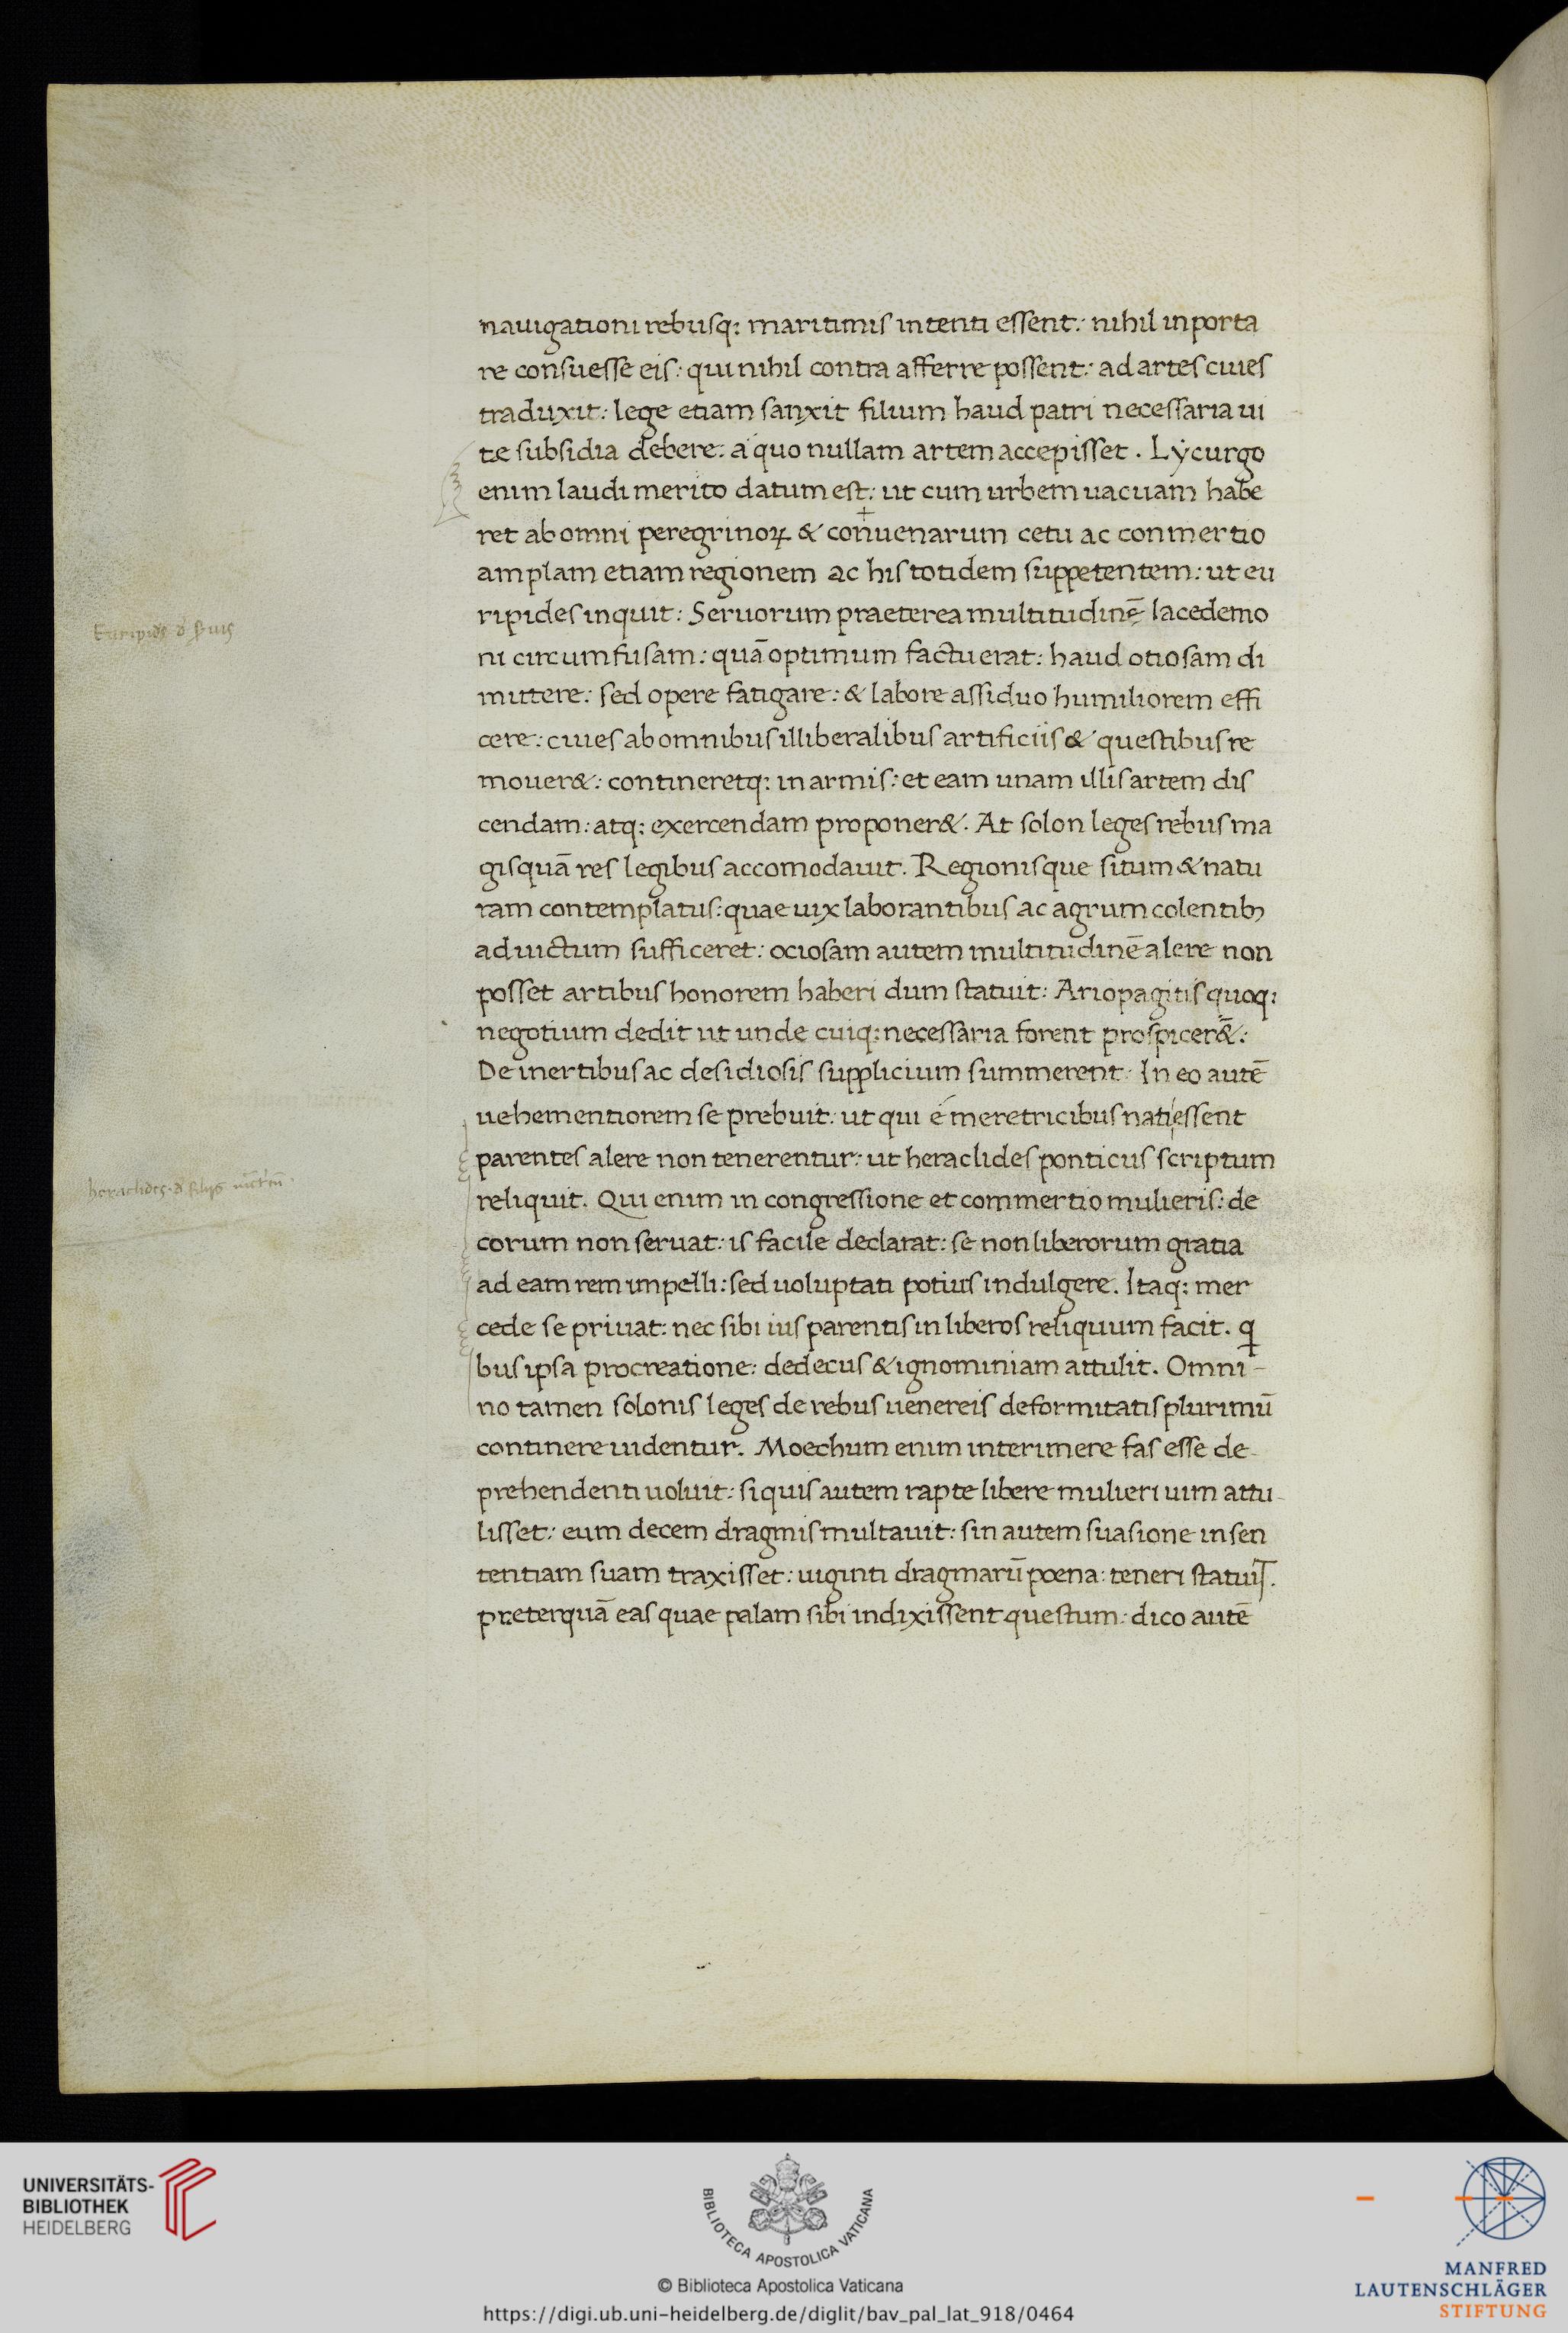 nauigationi rebusq; maritimis intenti essent: nihil inporta
re consuesse eis: qui nihil contra afferre possent: ad artes ciues
traduxit: lege etiam sanxit filium haud patri necessaria ui
te subsidia debere: a quo nullam artem accepisset. Lycurgo
enim laudi merito datum est: ut cum urbem uacuam habe
ret ab omni peregrinoꝝ & conuenarum cetu ac conmertio
amplam etiam regionem ac his totidem suppetentem: ut eu
ripides inquit: Seruorum praeterea multitudinē lacedemo
ni circumfusam: quā optimum factu erat: haud otiosam di
mittere: sed opere fatigare: & labore assiduo humiliorem effi
cere: ciues ab omnibus illiberalibus artificiis & questibus re
mouer&: contineretq; in armis: et eam unam illis artem dis
cendam: atq; exercendam proponer&. At solon leges rebus ma
gis quā res legibus accomodauit. Regionisque situm & natu
ram contemplatus: quae uix laborantibus ac agrum colentibꝫ
ad uictum sufficeret: ociosam autem multitudinē alere non
posset artibus honorem haberi dum statuit: Ariopagitis quoq;
negotium dedit ut unde cuiq; necessaria forent prospicer&̄:
De inertibus ac desidiosis supplicium summerent. In eo autē
uehementiorem se prebuit: ut qui é meretricibus nati essent
parentes alere non tenerentur: ut heraclides ponticus scriptum
reliquit. Qui enim in congressione et commertio mulieris: de
corum non seruat: is facile declarat: se non liberorum gratia
ad eam rem impelli: sed uoluptati potius indulgere. Itaq; mer
cede se priuat: nec sibi ius parentis in liberos reliquum facit. ꝗ
bus ipsa procreatione: dedecus & ignominiam attulit. Omni-
no tamen solonis leges de rebus uenereis deformitatis plurimū
continere uidentur. Moechum enim interimere fas esse de-
prehendenti uoluit: si quis autem rapte libere mulieri uim attu-
lisset: eum decem dragmis multauit: sin autem suasione in sen
tentiam suam traxisset: uiginti dragmarū poena: teneri statuit.
preterquā eas quae palam sibi indixissent questum: dico autē
UNIVERSITÄTS-
BIBLIOTHEK
HEIDELBERG
BIBLIOTECA APOSTOLICA VATICANA
© Biblioteca Apostolica Vaticana
https://digi.ub.uni-heidelberg.de/diglit/bav_pal_lat_918/0464
MANFRED
LAUTENSCHLÄGER
STIFTUNG